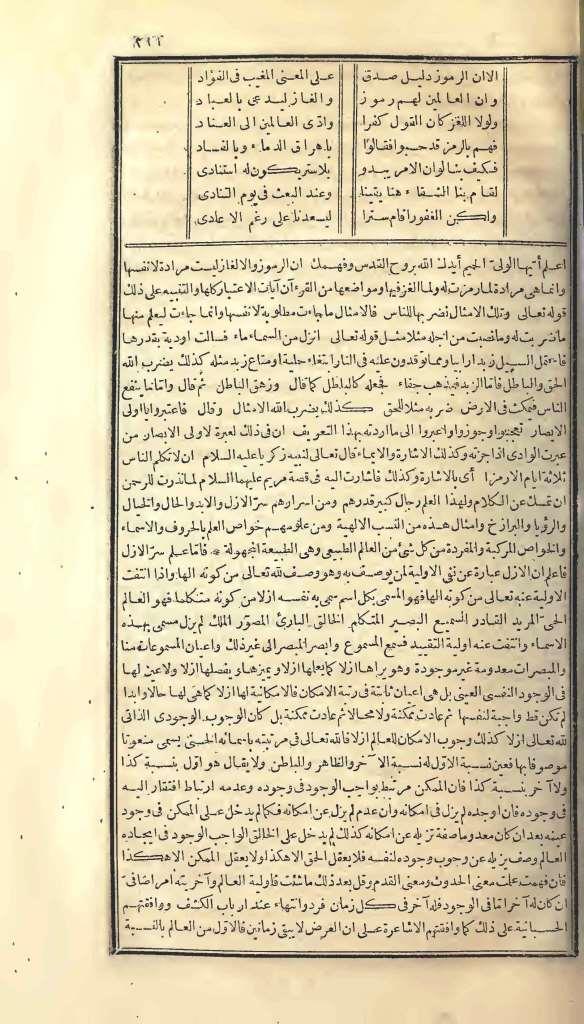 ٢١٢
الا ان الرموز دليل صدق على المعنى المغيب فى الفؤاد
وان العالمين لهم رموز والغاز ليدعى بالعباد
ولولا اللغز كان القول كفرا وادّى العالمين الى العناد
فهم بالرمز قد حسبوا فقالوا باهراق الدماء وبالفساد
فكيف بنا لو ان الامر يبدو بلا ستر يكون له استنادى
لقام بنا الشقاء هنا يقينا وعند البعث فى يوم التنادى
ولكن الغفور اقام سترا ليسعدنا على رغم الاعادى
اعلم أيها الولىّ الحميم أيدك الله بروح القدس وفهمك ان الرموز والالغاز ليست مرادة لانفسها
وانما هى مرادة لما رمزت له ولما الغز فيها ومواضعها من القرءآن آيات الاعتبار كلها والتنبيه على ذلك
قوله تعالى وتلك الامثال نضربها للناس فالامثال ما جاءت مطلوبة لانفسها وانما جاءت ليعلم منها
ما ضربت له وما نصبت من اجله مثلا مثل قوله تعالى انزل من السماء ماء فسالت اودية بقدرها
فاحتمل السيل زبدا رابيا ومما توقدون عليه فى النار ابتغاء حلية او متاع زبد مثله كذلك يضرب الله
الحق والباطل فاما الزبد فيذهب جفاء فجعله كالباطل كما قال وزهق الباطل ثم قال واما ما ينفع
الناس فيمكث فى الارض ضربه مثلا للحق كذلك يضرب الله الامثال وقال فاعتبروا يا اولى
الابصار تعجبوا وجوزوا واعبروا الى ما اردته بهذا التعريف ان فى ذلك لعبرة لاولى الابصار من
عبرت الوادى اذا جزته وكذلك الاشارة والايماء قال تعالى لنبيه زكريا عليه السلام ان لا تكلم الناس
ثلاثة ايام الا رمزا أى بالاشارة وكذلك فاشارت اليه فى قصة مريم عليهما السلام لما نذرت للرحمن
ان تمسك عن الكلام ولهذا العلم رجال كبير قدرهم ومن اسرارهم سرّ الازل والابد والحال والخيال
والرؤيا والبرازخ وامثال هذه من النسب الالهية ومن علومهم خواص العلم بالحروف والاسماء
والخواص المركبة والمفردة من كل شئ من العالم الطبيعى وهى الطبيعة المجهولة * فاما علم سرّ الازل
فاعلم ان الازل عبارة عن نفى الاولية لمن يوصف به وهو وصف لله تعالى من كونه الها واذا انتفت
الاولية عنه تعالى من كونه الها فهو المسمى بكل اسم سمى به نفسه ازلا من كونه متكلما فهو العالم
الحىّ المريد القادر السميع البصير المتكلم الخالق البارئ المصوّر الملك لم يزل مسمى بهذه
الاسماء وانتفت عنه اولية التقييد فسمع المسموع وابصر المبصر الى غير ذلك واعيان المسموعات منا
والمبصرات معدومة غير موجودة وهو يراها ازلا كما يعلمها ازلا ويميزها ويفصلها ازلا ولا عين لها
فى الوجود النفسى العينى بل هى اعيان ثابتة فى رتبة الامكان فالامكانية لها ازلا كما هى لها حالا وابدا
لم تكن قط واجبة لنفسها ثم عادت ممكنة ولا محالا ثم عادت ممكنة بل كان الوجوب الوجودى الذاتى
لله تعالى ازلا كذلك وجوب الامكان للعالم ازلا فالله تعالى فى مرتبته باسمائه الحسنى يسمى منعوتا
موصوفا بها فعين نسبة الاول له نسبة الآخر والظاهر والباطن ولا يقال هو اول بنسبة كذا
ولا آخر بنسبة كذا فان الممكن مرتبط بواجب الوجود فى وجوده وعدمه ارتباط افتقار اليه
فى وجوده فان اوجده لم يزل فى امكانه وان عدم لم يزل عن امكانه فكما لم يدخل على الممكن فى وجود
عينه بعد ان كان معدوما صفة تزيله عن امكانه كذلك لم يدخل على الخالق الواجب الوجود فى ايجاده
العالم وصف يزيله عن وجوب وجوده لنفسه فلا يعقل الحق الا هكذا ولا يعقل الممكن الا هكذا
فان فهمت علمت معنى الحدوث ومعنى القدم وقل بعد ذلك ما شئت فاولية العالم وآخريته امر اضافىّ
ان كان له آخر اما فى الوجود فله آخر فى كل زمان فرد وانتهاء عند ارباب الكشف ووافقتهم
الحسبانية على ذلك كما وافقتهم الاشاعرة على ان العرض لا يبقى زمانين فالاول من العالم بالنسبة